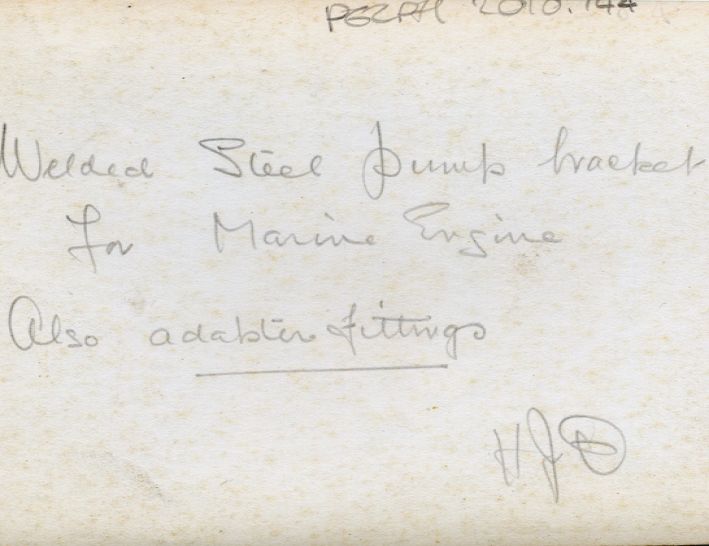 PGZPH 2010.144
Welded Steel pump bracket
for Marine Engine
Also adapter fittings
HJD